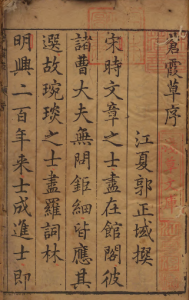 蒼霞草序
江夏郭正域撰
宋時文章之士盡在館閣彼
諸曹大夫無閒鉅細皆應其
選故琬琰之士盡羅詞林
明興二百年来士成進士即